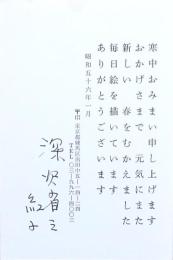 寒中おみまい申し上げます
おかげさまで 元気にまた
新しい 春をむかえました
毎日絵を描いています
ありがとうございます
昭和五十六年一月
東京都練馬区
深沢省三
紅子